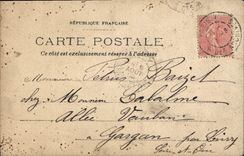 RÉPUBLIQUE FRANÇAISE
CARTE POSTALE
Ce côté est exclusivement réservé à l'adresse
Monsieur Petrus Baizet
chez Monsieur Labalme
Allée Vauban
à Gargan par Livry
Seine et Oise